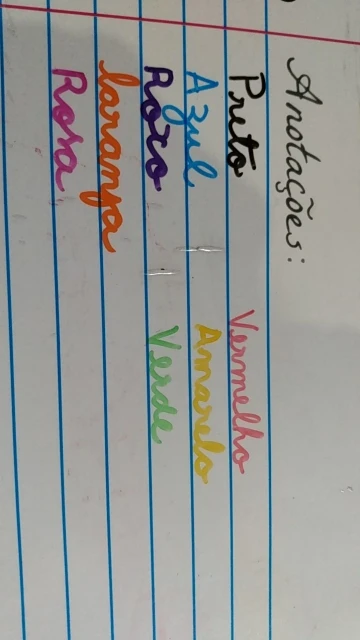 Anotações:
Preto Vermelho
Azul Amarelo
Roxo Verde
laranja
Rosa